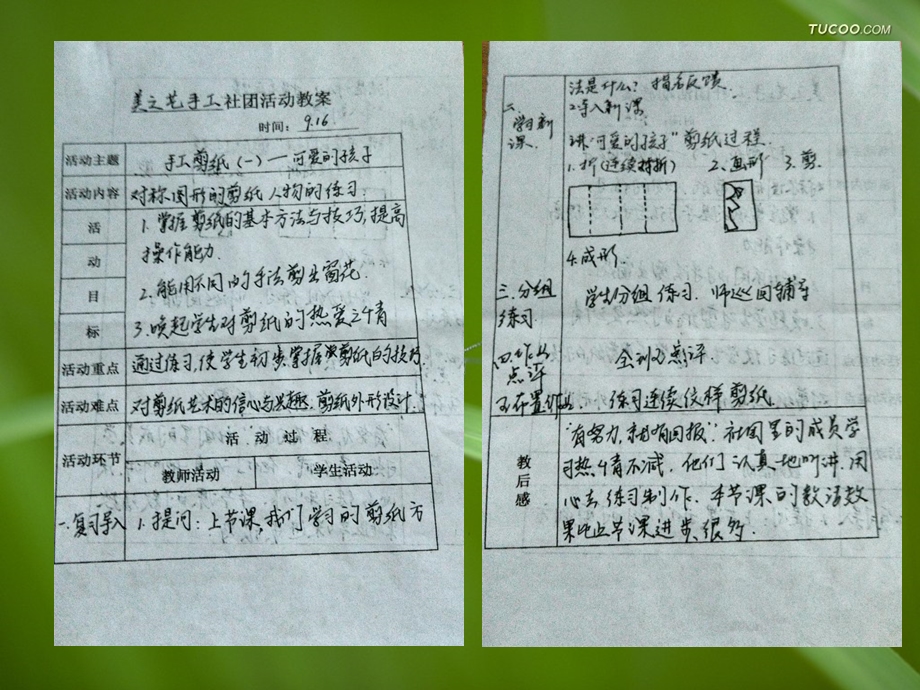 TUCOO.COM
美之艺手工社团活动教案
时间：9.16
活动主题 手工剪纸(一)—可爱的孩子
活动内容 对称图形的剪纸人物的练习.
活动目标
1.掌握剪纸的基本方法与技巧,提高
操作能力.
2.能用不同的手法剪出窗花.
3.唤起学生对剪纸的热爱之情
活动重点 通过练习,使学生初步掌握剪纸的技巧
活动难点 对剪纸艺术的信心与兴趣.剪纸外形设计.
活动环节 活动过程
教师活动 学生活动
一.复习导入 1.提问：上节课,我们学习的剪纸方
法是什么？指名反馈
2.导入新课
二.学习新课.
讲"可爱的孩子"剪纸过程
1.折(连续对折) 2.画形 3.剪.
4.成形.
三.分组 学生分组练习.师巡回辅导
练习.
四.作业
点评 点评.
五.布置作业. 练习连续花样剪纸.
教后感
"有努力,就有回报",社团里的成员学
习热情不减,他们认真地听讲,用
心去练习制作.本节课的教读效
果比上节课进步很多.